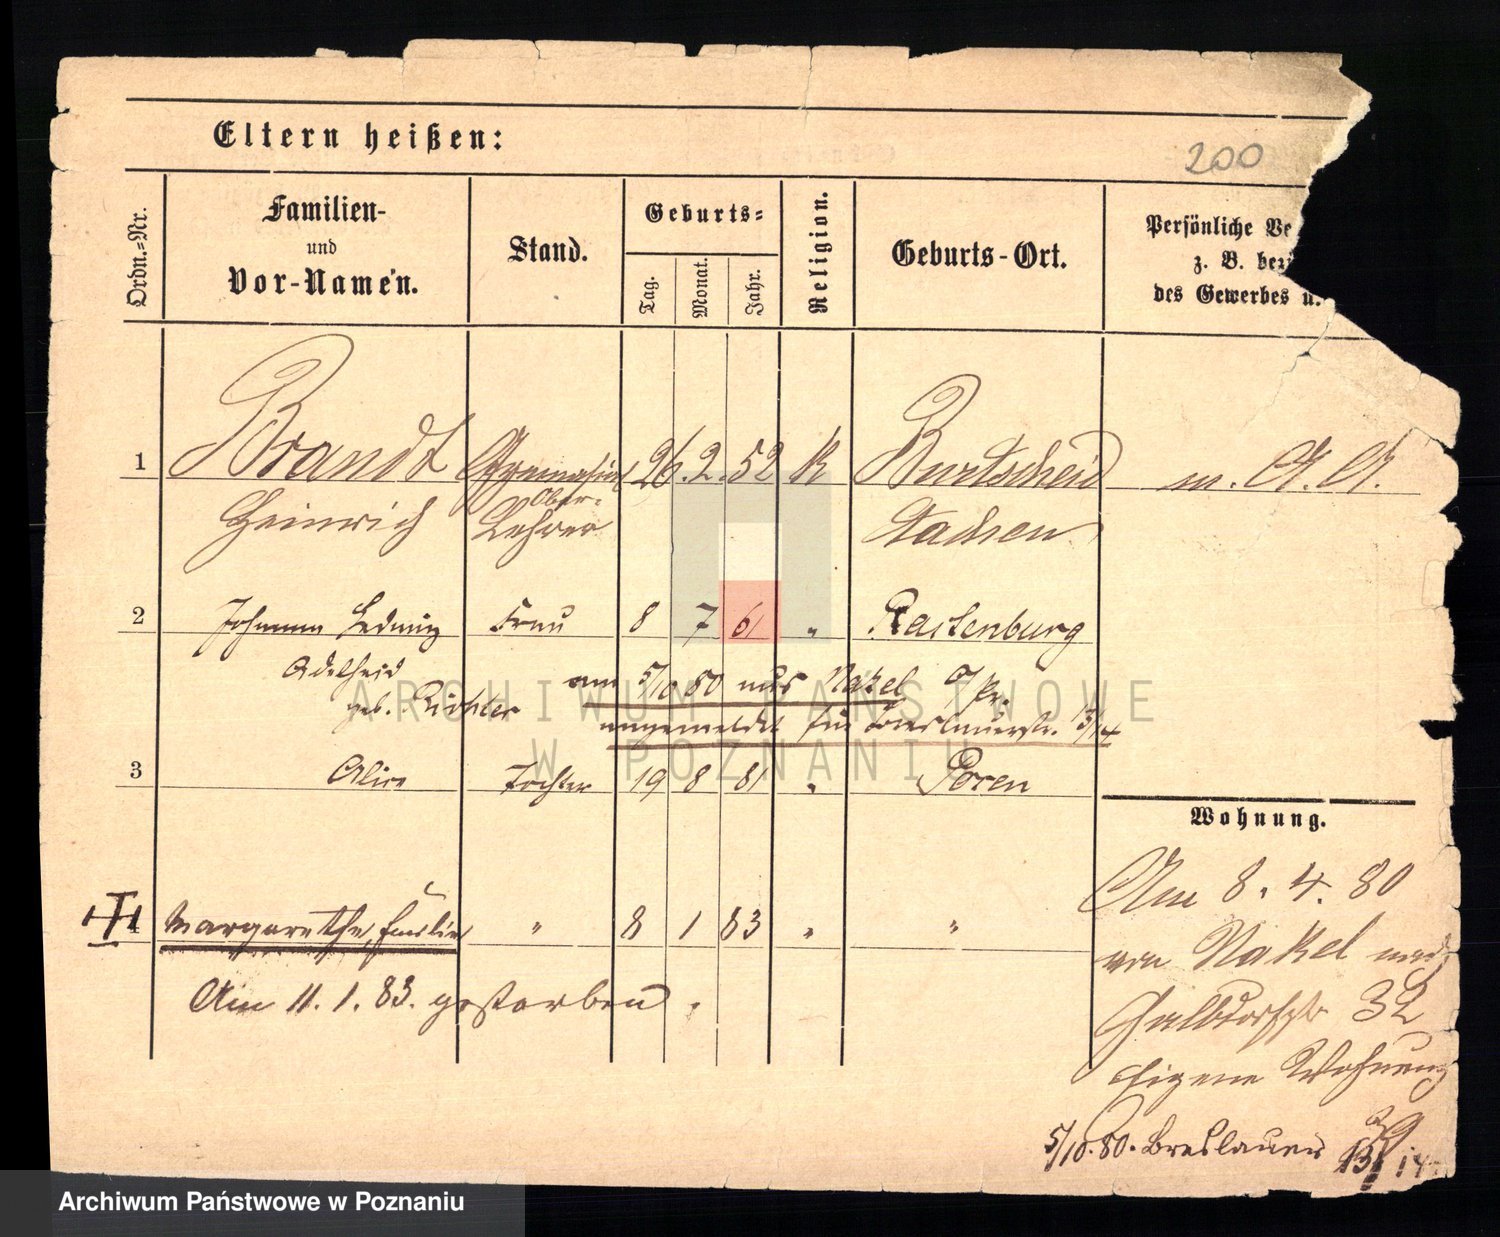 Eltern heißen:
200
Ordn.=Nr.
Familien-
und
Vor-Namen.
Stand.
Geburts=
Tag.
Monat.
Jahr.
Religion.
Geburts-Ort.
Persönliche Ve
z. B. bezi
des Gewerbes u.
1 Brandt Gymnasial 26. 2. 52 K Burtscheid m. A. A.
Ober-
Heinrich Lehrer Aachen
2 Johanna Hedwig Frau 8 7 61 " Rastenburg
Adelheid am 5/10 80 aus Nakel
geb. Richter
angemeldet für Breslauerstr. 13/14
3 Alice Tochter 19 8 81 " Posen
Wohnung.
4 Margarethe, Emilie " 8 1 83 " "
Am 11. 1. 83. gestorben.
Am 8. 4. 80
von Nakel nach
Halbdorfstr 32
Eigene Wohnung
5/10. 80. Breslauer 13/14
ARCHIWUM PAŃSTWOWE
W POZNANIU
Archiwum Państwowe w Poznaniu